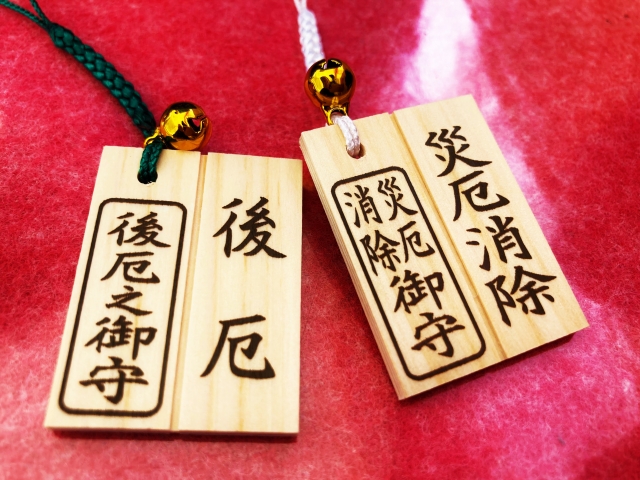 後厄
後厄之御守
災厄消除
災厄
消除
御守